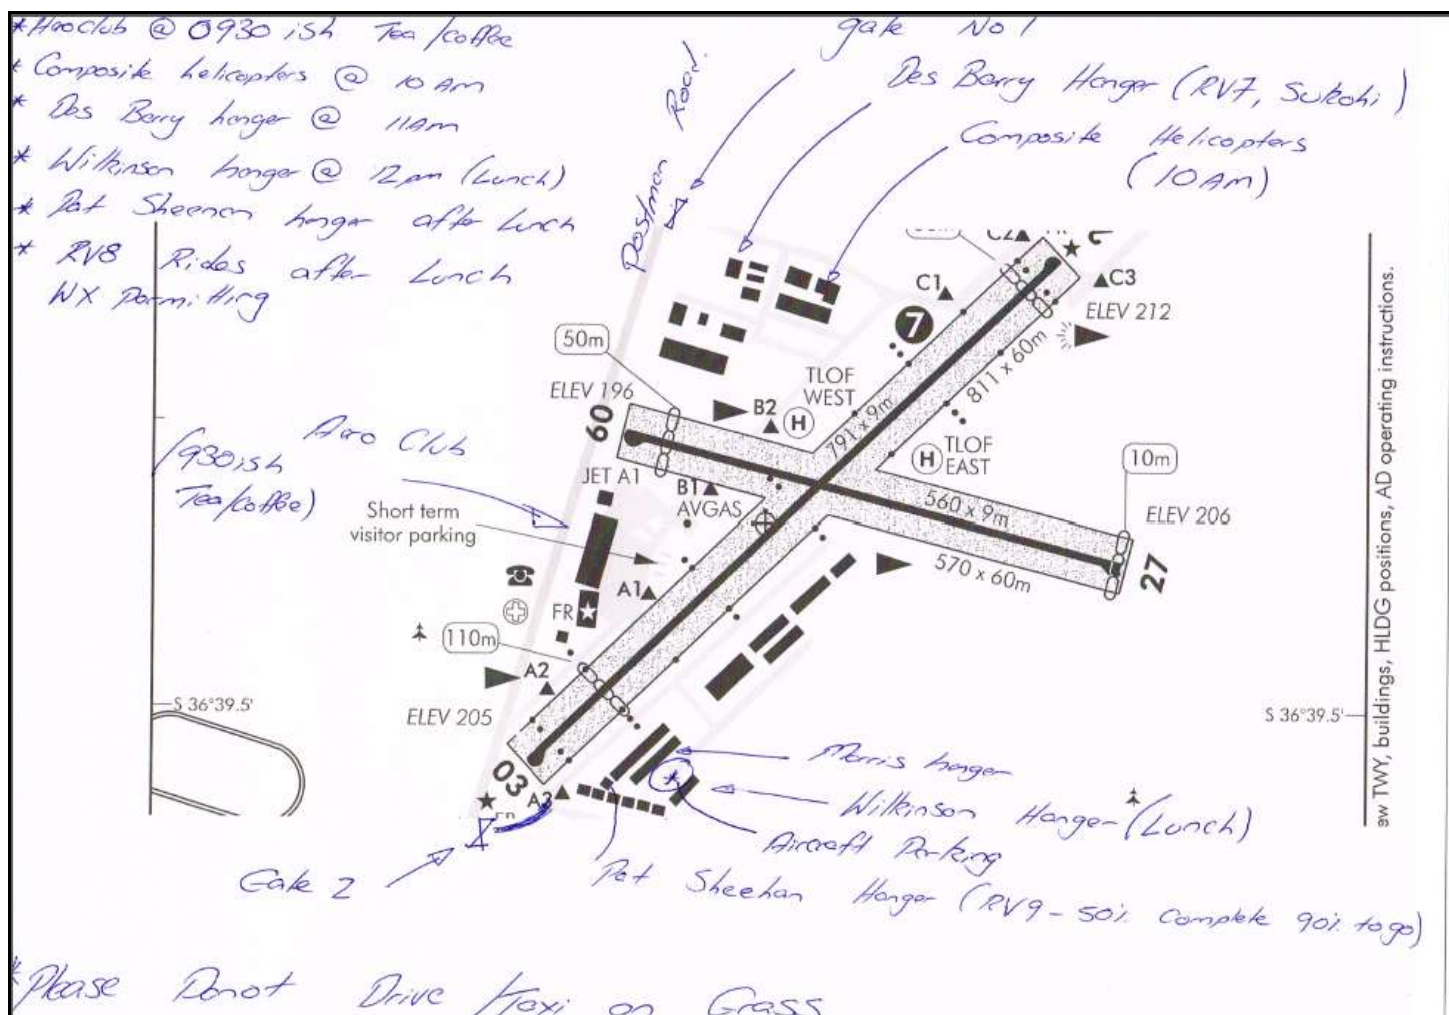 *Aeroclub @ 0930 ish Tea/coffee
* Composite helicopters @ 10 AM
* Des Barry hanger @ 11AM
* Wilkinson hanger @ 12pm (Lunch)
* Pat Sheehan hanger after Lunch
* RV8 Rides after Lunch
WX Permitting
gate No 1
Des Barry Hanger (RV7, Sukohi)
Composite Helicopters
(10AM)
Postman Road.
C2
C1
C3
7
ELEV 212
50m
ELEV 196
TLOF
WEST
B2
H
811 x 60m
791 x 9m
09
Aero Club
(930ish
Tea/coffee)
JET A1
B1
AVGAS
H
TLOF
EAST
10m
560 x 9m
ELEV 206
570 x 60m
27
Short term
visitor parking
A1
FR
110m
A2
S 36°39.5'
ELEV 205
S 36°39.5'
03
A3
Morris hanger
Wilkinson Hanger (Lunch)
Aircraft Parking
Gate 2
Pat Sheehan Hanger (RV9 - 50% Complete 90% to go)
*Please Donot Drive/taxi on Grass
ew TWY, buildings, HLDG positions, AD operating instructions.